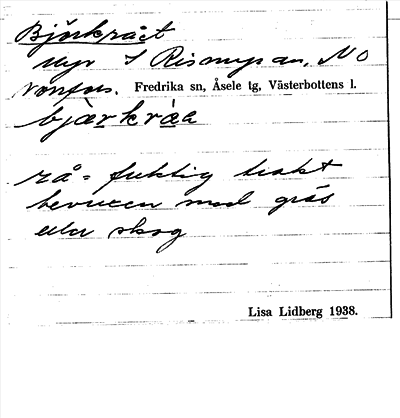 Björkrået
myr S Rismyran, NO
Fredrika sn, Åsele tg, Västerbottens l.
bjær̲kråa
rå = fuktig trakt
bevuxen med gräs
eller skog
Lisa Lidberg 1938.